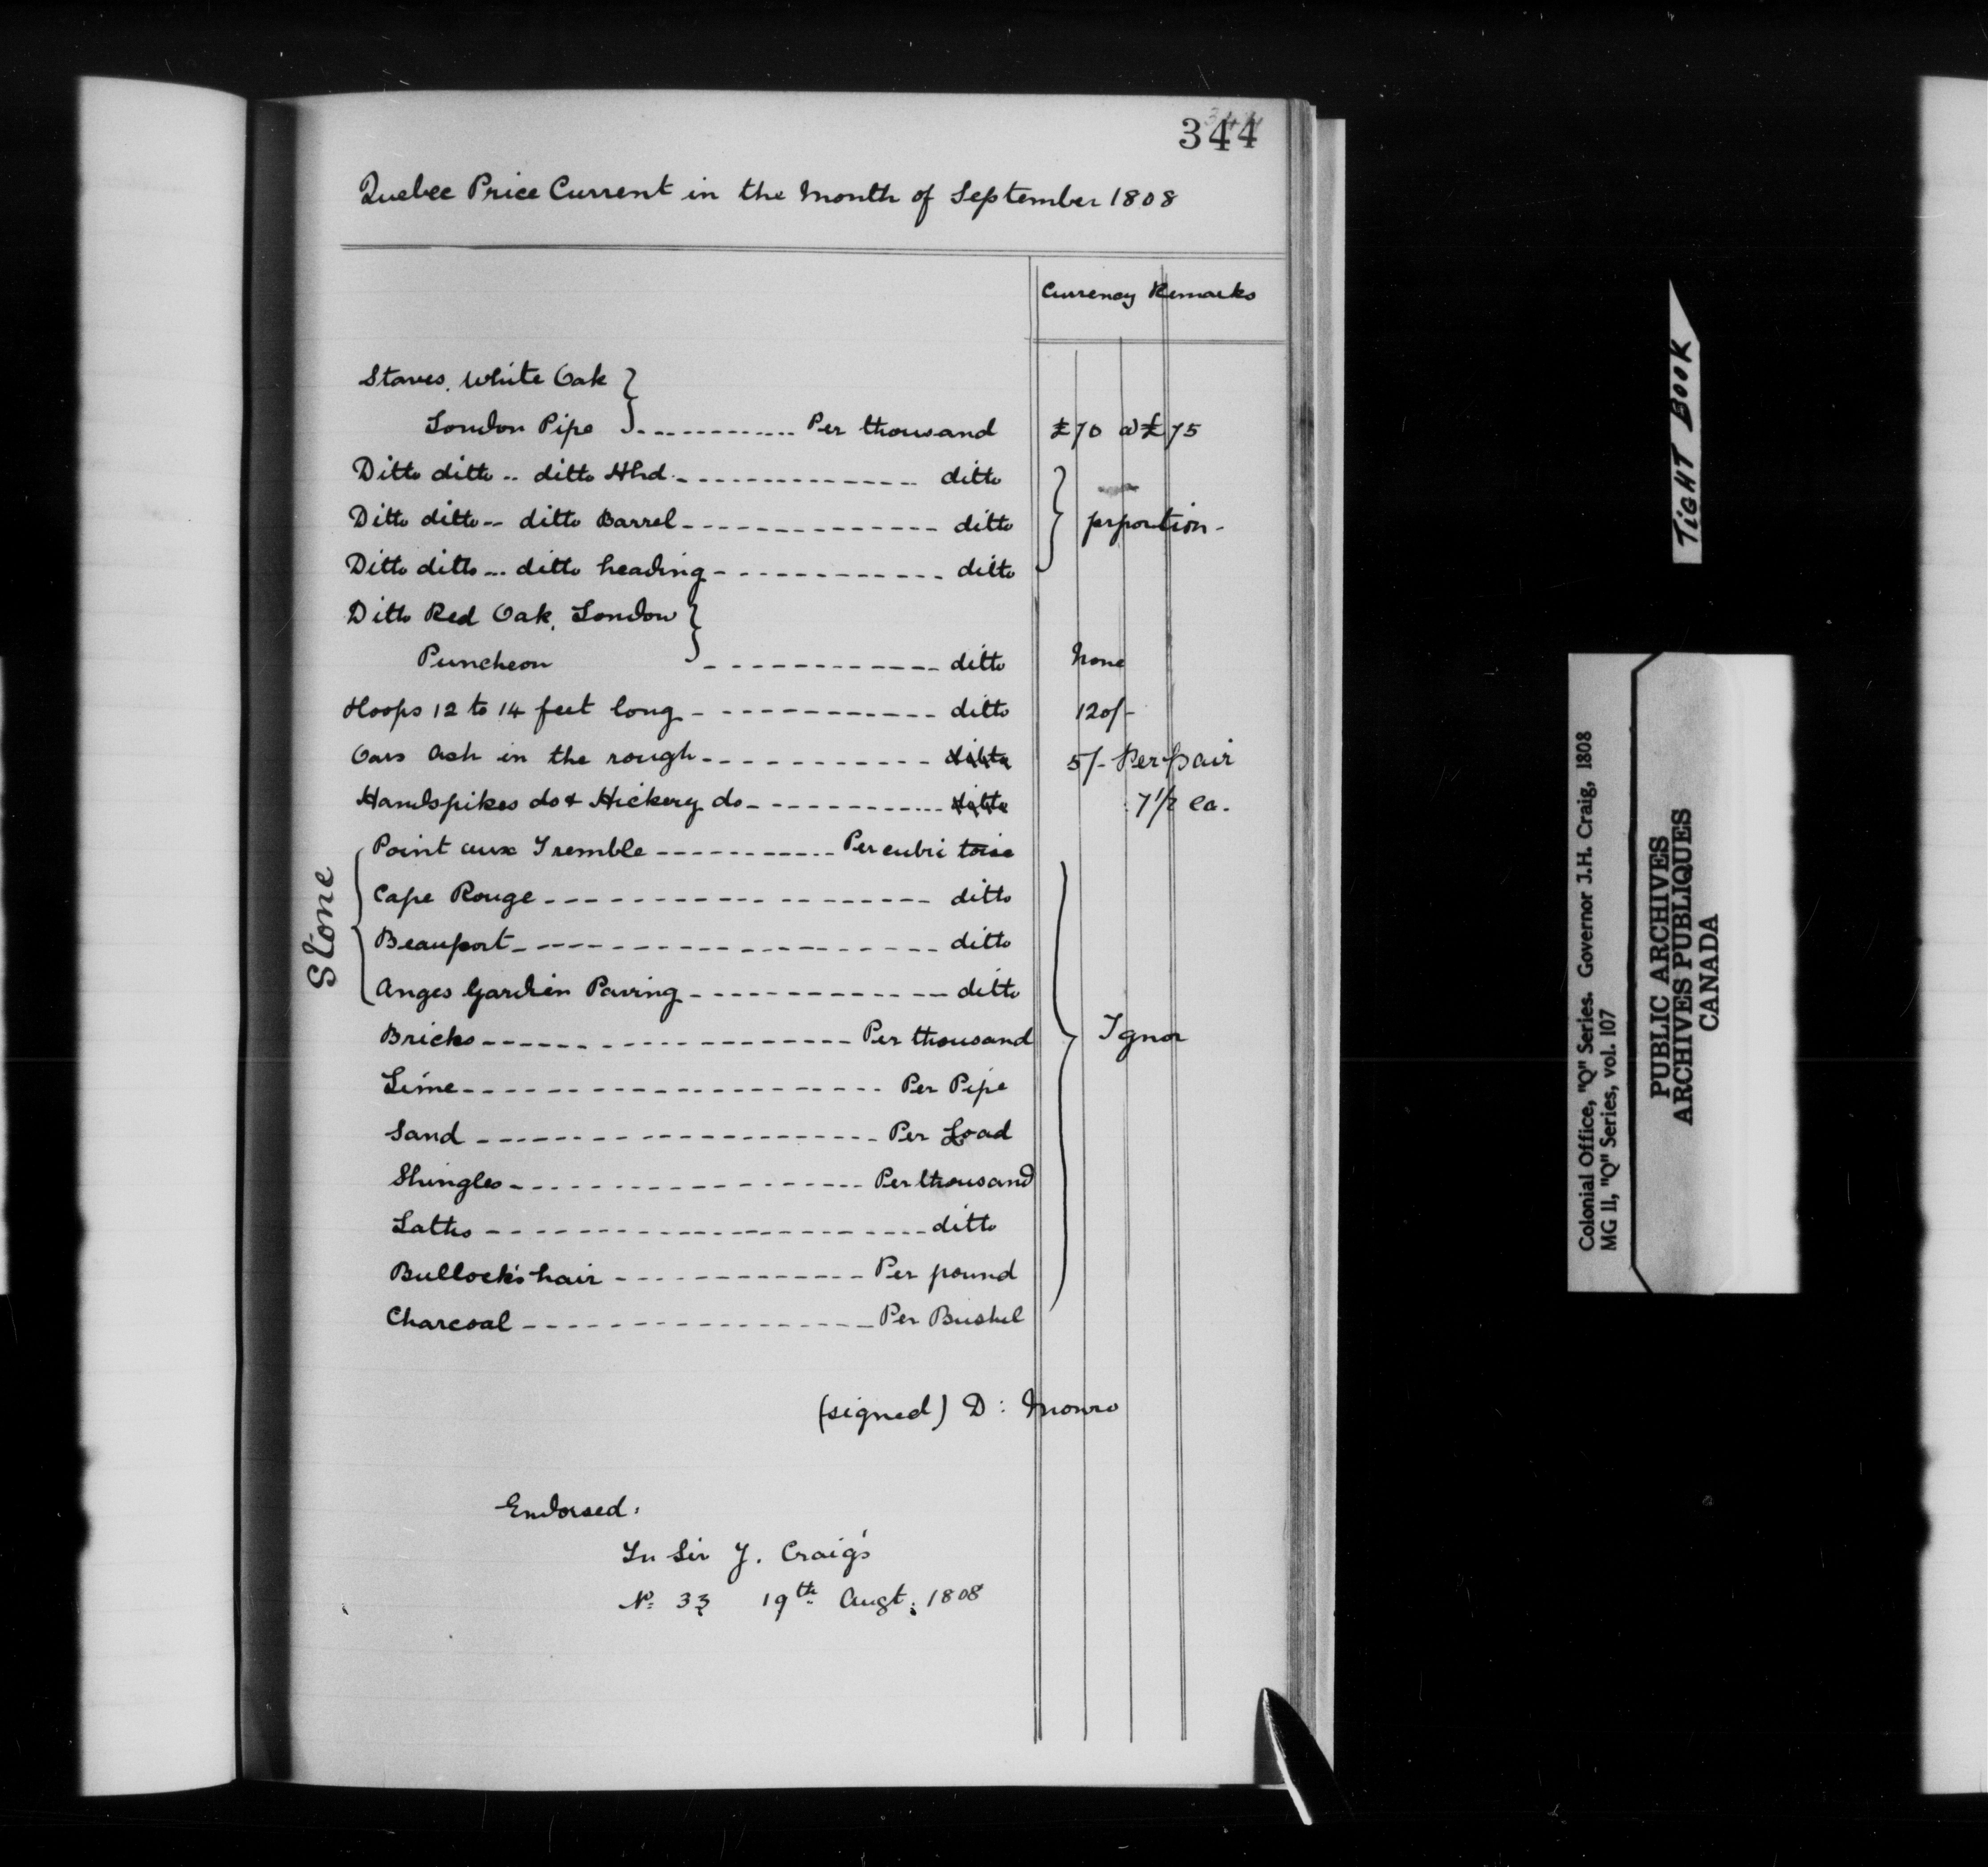 344
Quebec Price Current in the Month of September 1808
Currency Remarks
Staves, White Oak }
London Pipe } ............ Per thousand £70 a £75
Ditto ditto .. ditto Hhd. ............ ditto
Ditto ditto -- ditto Barrel ............ ditto } prportion -
Ditto ditto ... ditto heading ............ ditto
Ditto Red Oak, London }
Puncheon ............ ditto None
Hoops 12 to 14 feet long ............ ditto 120/-
Oars Ash in the rough ............ ditto 5/- Per pair
Handspikes do & Hickery do ............ ditto 7 1/2 ea.
Stone
{ Point aux Tremble ............ Per cubic toise
Cape Rouge ............ ditto
Beauport ............ ditto
Anges Gardien Paving ............ ditto
Bricks ............ Per thousand } Ignor
Lime ............ Per Pipe
Sand ............ Per Load
Shingles ............ Per thousand
Laths ............ ditto
Bullock's hair ............ Per pound
Charcoal ............ Per Bushel
(signed) D: Monro
Endorsed:
In Sir J. Craig's
No. 33 19th Augt. 1808
TIGHT BOOK
Colonial Office, "Q" Series. Governor J.H. Craig, 1808
MG 11, "Q" Series, vol. 107
PUBLIC ARCHIVES
ARCHIVES PUBLIQUES
CANADA